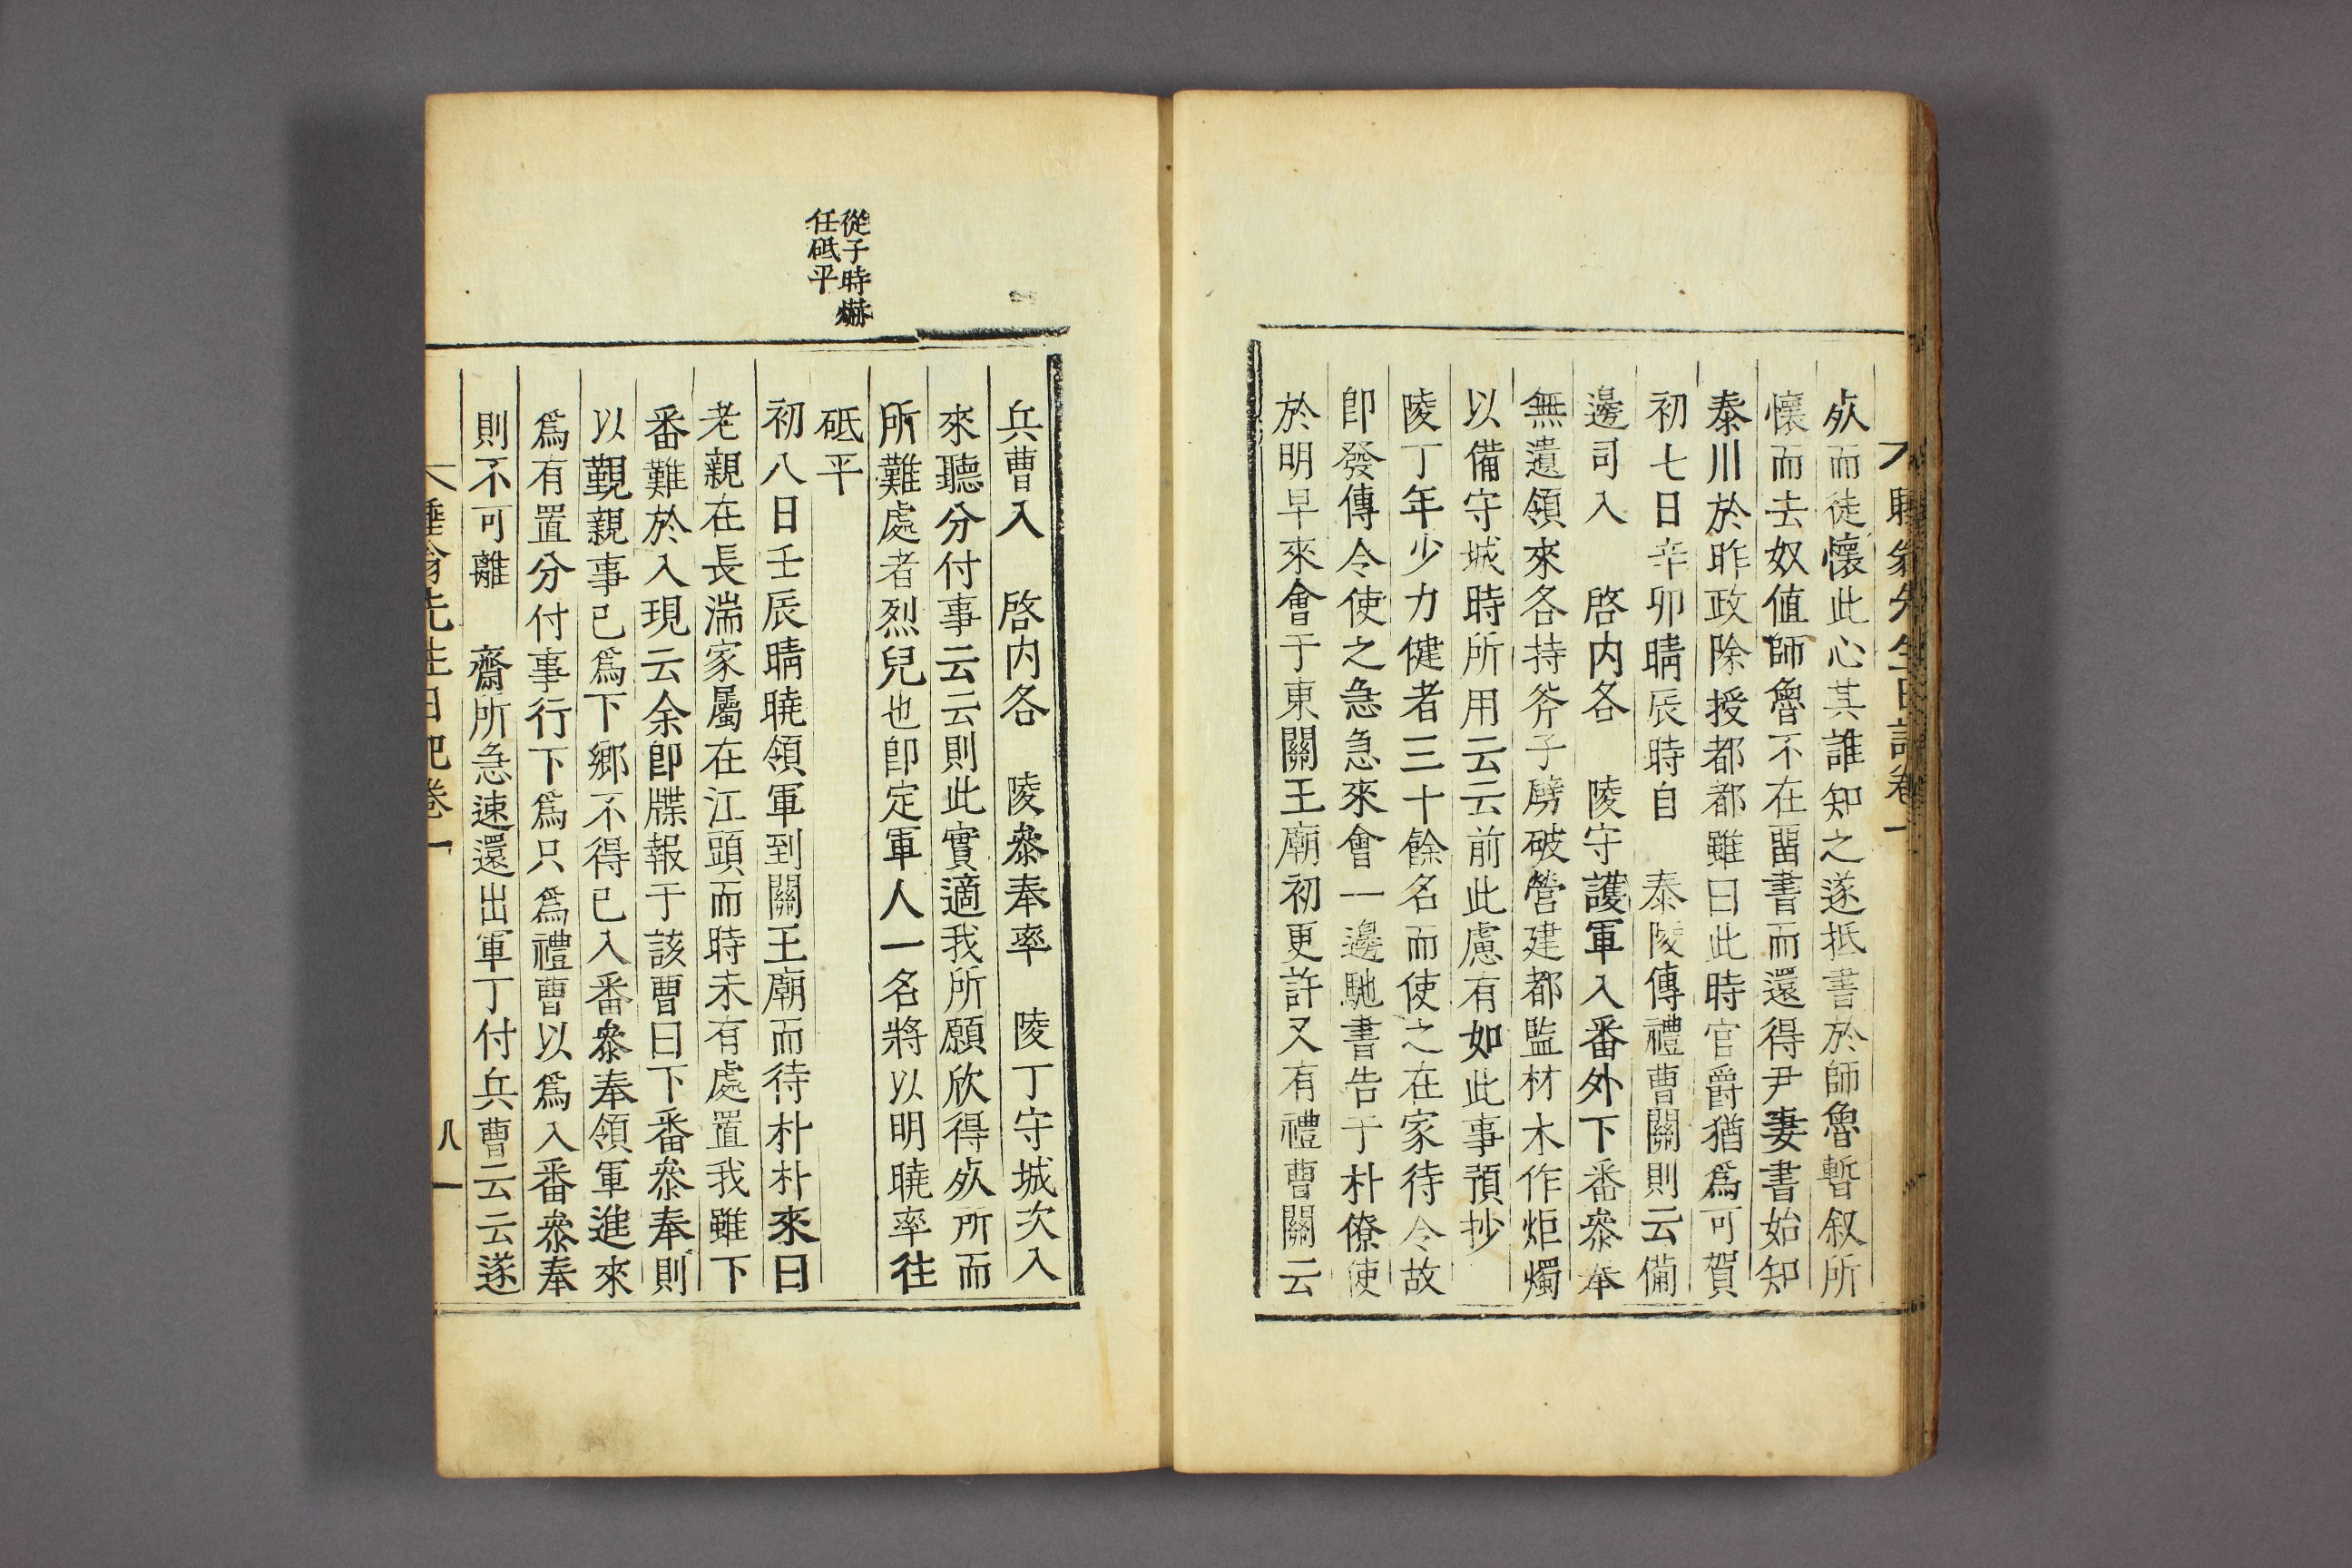 死而徒懷此心其誰知之遂抵書於師魯暫叙所
懷而去奴值師魯不在留書而還得尹妻書始知
泰川於昨政除授都都雖曰此時官爵猶爲可賀
初七日辛卯晴辰時自 泰陵傳禮曹關則云備
邊司入 啓內各 陵守護軍入番外下番叅奉
無遺領來各持斧子劈破營建都監材木作炬燭
以備守城時所用云云前此慮有如此事預抄
陵丁年少力健者三十餘名而使之在家待令故
卽發傳令使之急急來會一邊馳書告于朴僚使
於明早來會于東關王廟初更許又有禮曹關云
從子時爀
任砥平
兵曹入 啓內各 陵叅奉率 陵丁守城次入
來聽分付事云云則此實適我所願欣得死所而
所難處者烈兒也卽定軍人一名將以明曉率往
砥平
初八日壬辰晴曉領軍到關王廟而待朴朴來曰
老親在長湍家屬在江頭而時未有處置我雖下
番難於入現云余卽牒報于該曹曰下番叅奉則
以覲親事已爲下鄉不得已入番叅奉領軍進來
爲有置分付事行下爲只爲禮曹以爲入番叅奉
則不可離 齋所急速還出軍丁付兵曹云云遂
先生日記卷一 八